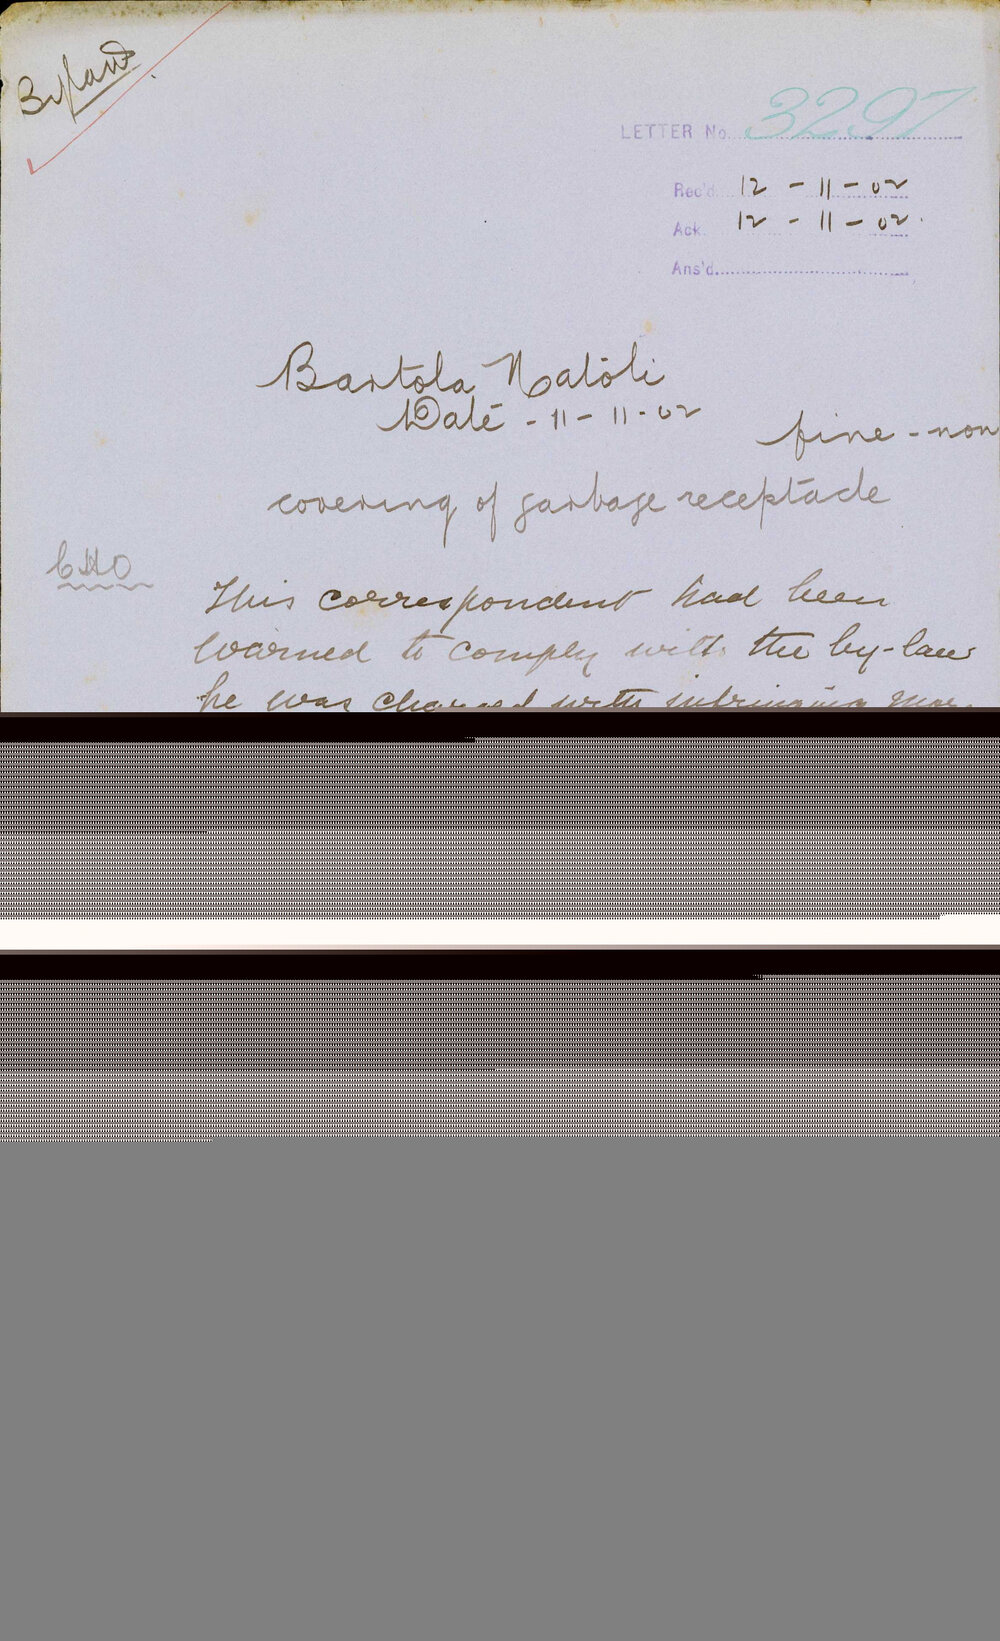 Bylaws
LETTER No. 3297
Rec'd. 12 - 11 - 02
Ack. 12 - 11 - 02.
Ans'd.
Bartola Natoli
Date - 11 - 11 - 02
fine - non
covering of garbage receptacle
CHO
This correspondent had been
warned to comply with the by-law
he was charged with infringing